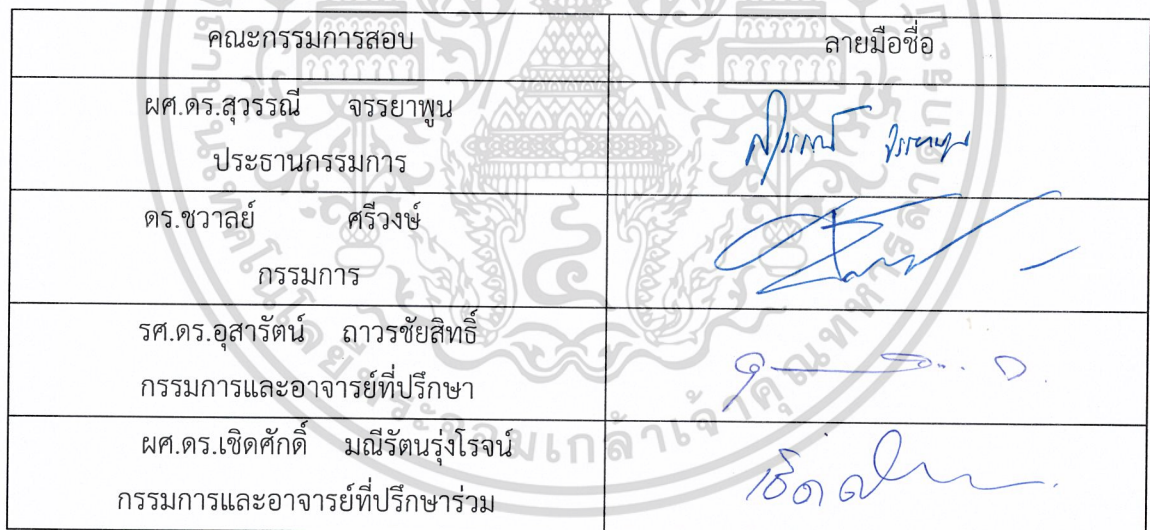 คณะกรรมการสอบ ลายมือชื่อ
ผศ.ดร.สุวรรณี จรรยาพูน
ประธานกรรมการ
ดร.ชวาลย์ ศรีวงษ์
กรรมการ
รศ.ดร.อุสารัตน์ ถาวรชัยสิทธิ์
กรรมการและอาจารย์ที่ปรึกษา
ผศ.ดร.เชิดศักดิ์ มณีรัตนรุ่งโรจน์
กรรมการและอาจารย์ที่ปรึกษาร่วม